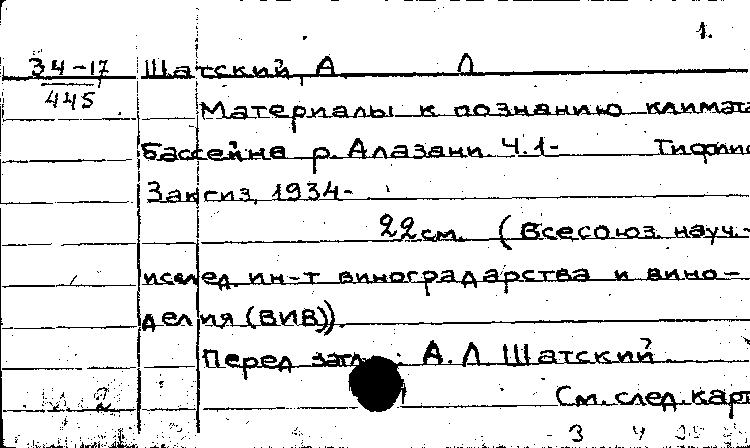 1.
34-17 Шатский, А Л
445
Материалы к познанию климата
бассейна р. Алазани. Ч.1- Тифлис
Закгиз, 1934-
22 см. (Всесоюз. науч.-
исслед. ин-т виноградарства и вино-
делия (ВИВ)).
Перед загл.: А. Л. Шатский
См. след. карт
2
3 4